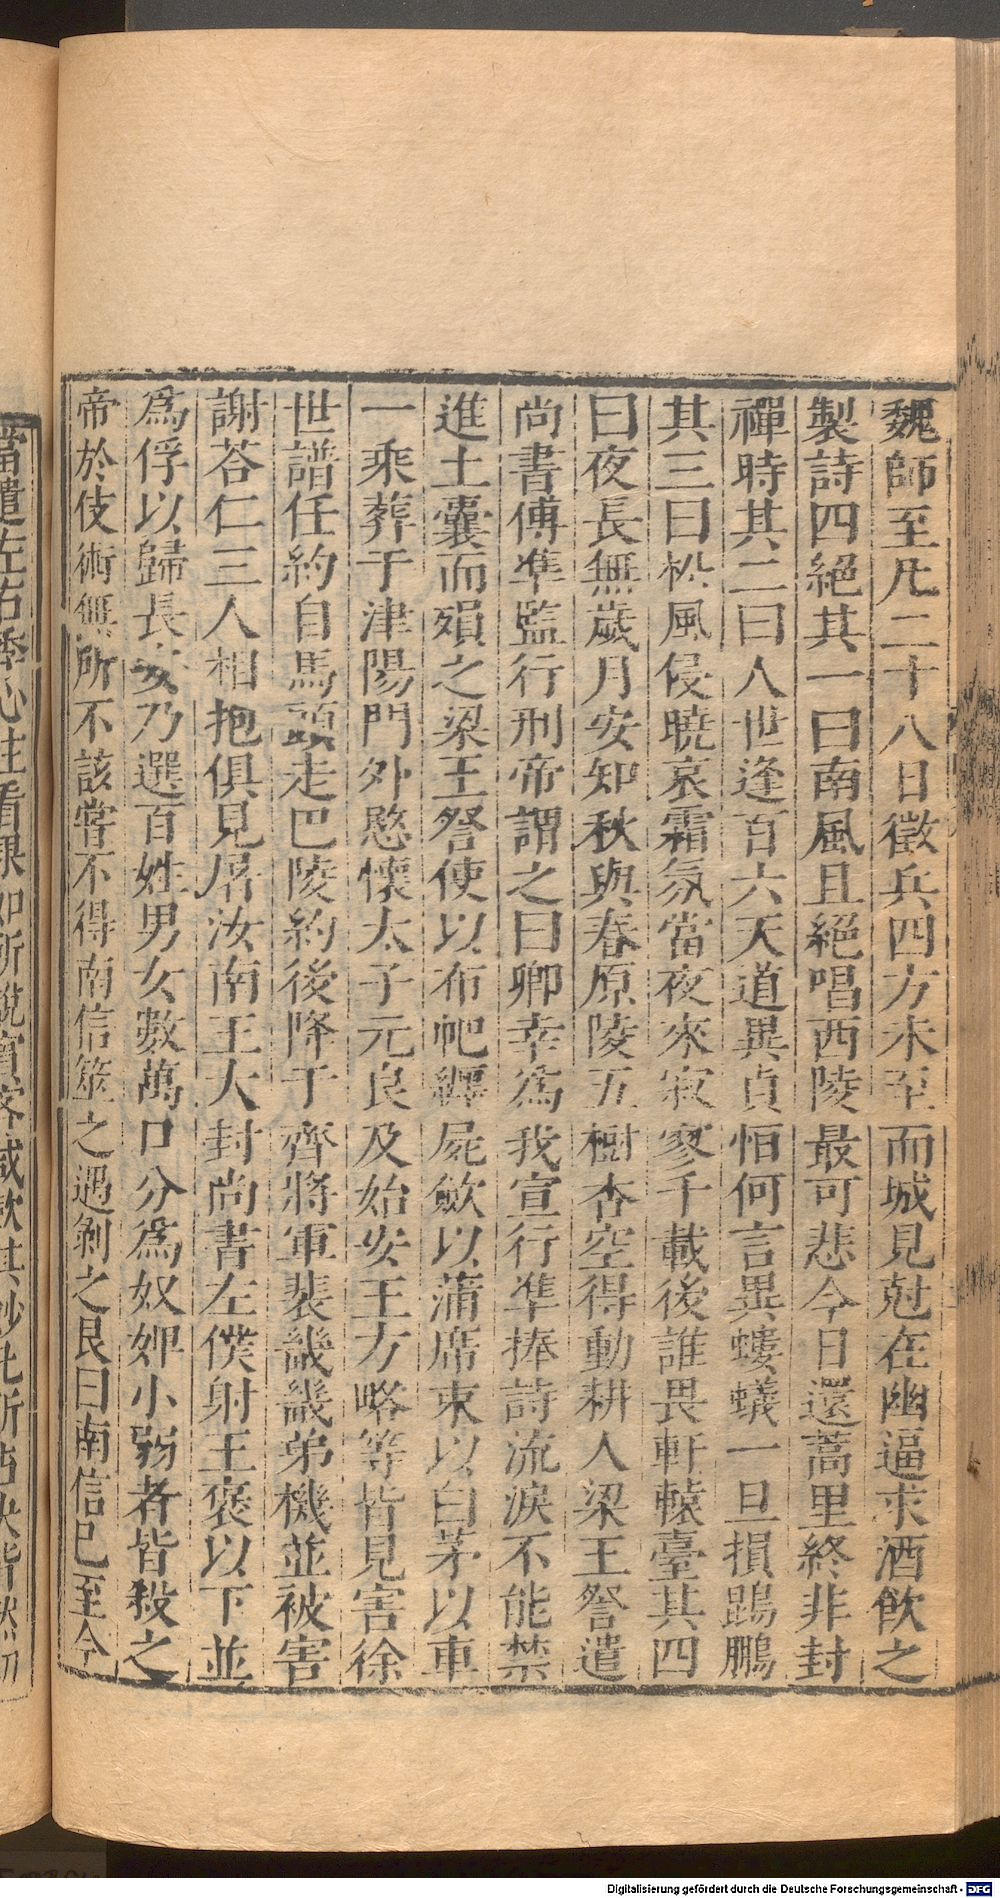 魏師至凡二十八日徵兵四方未至而城見尅在幽逼求酒飲之
製詩四絕其一曰南風且絕唱西陵最可悲今日還蒿里終非封
禪時其二曰人世逢百六天道異貞恒何言異螻蟻一旦損鵾鵬
其三曰松風侵曉哀霜氛當夜來寂寥千載後誰畏軒轅臺其四
曰夜長無歲月安知秋與春原陵五樹杏空得動耕人梁王詧遣
尚書傅準監行刑帝謂之曰卿幸爲我宣行準捧詩流淚不能禁
進土囊而殞之梁王詧使以布帊纏屍斂以蒲席束以白茅以車
一乘葬于津陽門外愍懷太子元良及始安王方略等皆見害徐
世譜任約自馬頭走巴陵約後降于齊將軍裴畿畿弟機並被害
謝荅仁三人相抱俱見屠汝南王大封尚書左僕射王褒以下並
爲俘以歸長安乃選百姓男女數萬口分爲奴婢小弱者皆殺之
帝於伎術無所不該嘗不得南信筮之遇剝之艮曰南信已至今
當遣左右季心往看果如所說賓客咸歎其妙凡所占決皆然初
Digitalisierung gefördert durch die Deutsche Forschungsgemeinschaft - DFG